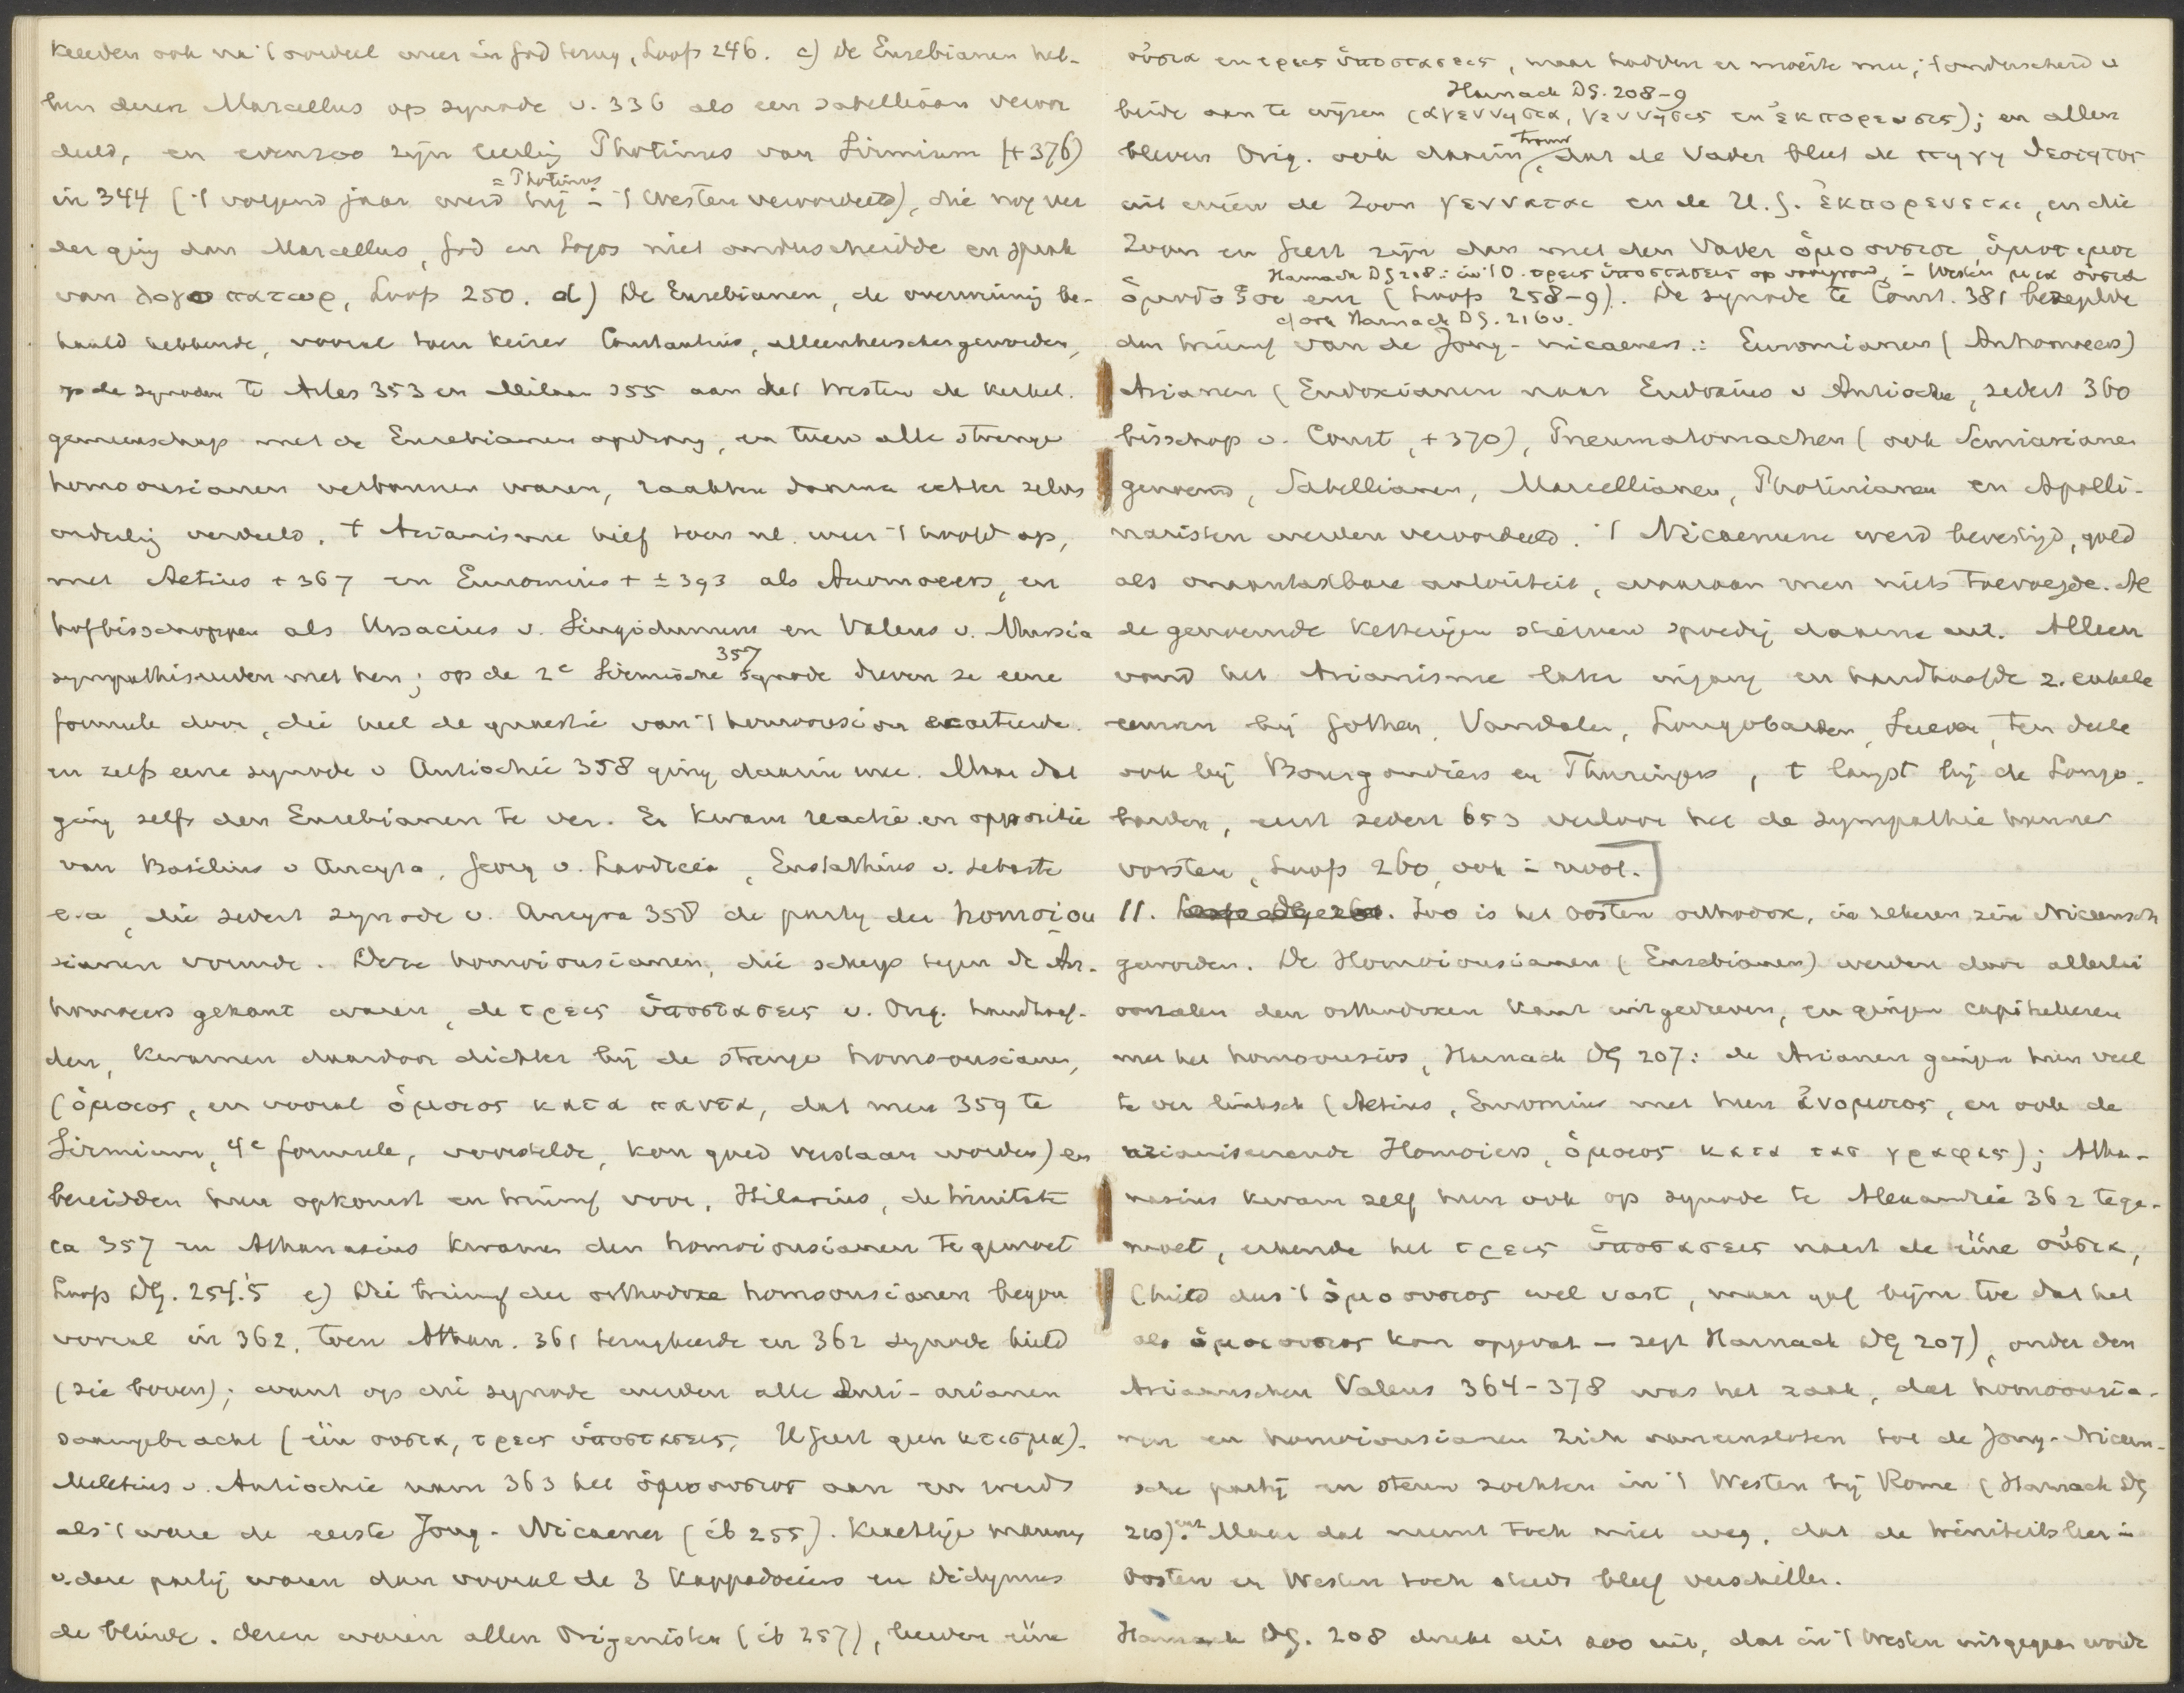 keerden ook na 't oordeel weer in God terug, Loofs 246. c) De Eusebianen heb-
ben dezen Marcellus op synode v. 336 als een sabelliaan veroor
deeld, en evenzoo zijn leerling Photinus van Sirmium (+ 376)
= Photinus
in 344 ('t volgend jaar werd hij in 't Westen veroordeeld), die nog ver
der ging dan Marcellus, God en Logos niet onderscheidde en sprak
van λογοπατωρ, Loofs 250. d) De Eusebianen, de overwinning be-
haald hebbende, vooral toen keizer Constantius, alleenheerscher geworden,
op de synoden te Arles 353 en Milaan 355 aan het Westen de kerkel.
gemeenschap met de Eusebianen opdrong, en toen alle strenge
homoousianen verbannen waren, raakten daarna echter zelve
onderling verdeeld. 't Arianisme hief toen nl. weer 't hoofd op,
met Aetius + 367 en Eunomius + ± 393 als Anomoeers, en
hofbisschoppen als Ursacius v. Singidunum en Valens v. Mursia
357
sympathiseerden met hen; op de 2e Sirmische synode dreven ze eene
formule door, die heel de quaestie van 't homoousion ecarteerde
en zelfs eene synode v Antiochië 358 ging daarin mee. Maar dat
ging zelfs den Eusebianen te ver. Er kwam reactie en oppositie
van Basilius v Ancyra, Georg v. Laodicea, Eustathius v. Sebaste
e.a, die sedert synode v. Ancyra 358 de partij der homoiou
sianen vormde. Deze homoiousianen, die scherp tegen de An-
homoeers gekant waren, de τρεις ὑποστασεις v. Orig. handhaaf-
den, kwamen daardoor dichter bij de strenge homoousianen,
(ὁμοιος, en vooral ὁμοιος κατα παντα, dat men 359 te
Sirmium, 4e formule, voorstelde, kon goed verstaan worden) en
bereidden hun opkomst en triumf voor. Hilarius, de
ca 357 en Athanasius kwamen den homoiousianen tegemoet
Loofs DG. 254.5 e) Die triumf der orthodoxe homoousianen begon
vooral in 362, toen Athan. 361 terugkeerde en 362 synode hield
(zie boven); want op die synode werden alle Anti-arianen
saamgebracht (één ουσια, τρεις ὑποστασεις, H Geest geen κτισμα).
Meletius v. Antiochie nam 363 het ὁμοουσιος aan en werd
als 't ware de eerste Jong-Nicaener (ib 255). Krachtige mannen
v. deze partij waren dan vooral de 3 Kappadociers en Didymus
de blinde. Dezen waren allen Origenisten (ib 257), leerden ééne
οὐσια en τρεις ὑποστασεις, maar hadden er moeite mee, 't onderscheid v
Harnack DG. 208-9
beide aan te wijzen (αγεννησια, γεννησις en ἐκπορευσις); en allen
trouw
bleven Orig. ook daarin, dat de Vader bleef de πηγη θεοτητος
uit wien de Zoon γεννᾶται en de H. G. ἐκπορευεται, en die
Zoon en Geest zijn dan met den Vader ὁμοουσιοι, ὁμοτιμοι
Harnack DG 208: in 't O. τρεις ὑποστασεις op voorgrond, in Westen μια οὐσια
ὁμοδοξοι enz (Loofs 258-9). De synode te Const. 381 bezegelde
cf ook Harnack DG. 216v.
den triumf van de Jong-nicaeners: Eunomianen (Anhomoeers)
Arianen (Eudoxianen naar Eudoxius v Antiochie, sedert 360
bisschop v. Const, + 370), Pneumatomachen (ook Semiarianen
genoemd, Sabellianen, Marcellianen, Photinianen en Apolli-
naristen werden veroordeeld. 't Nicaenum werd bevestigd, gold
als onaantastbare autoriteit, waaraan men niets toevoegde. Al
de genoemde ketterijen stierven spoedig daarna uit. Alleen
vond het Arianisme later ingang en handhaafde z. enkele
eeuwen bij Gothen, Vandalen, Longobarden, Sueven, ten deele
ook bij Bourgondiers en Thuringers, 't langst bij de Longo-
barden, eerst sedert 653 verloor het de sympathie hunner
vorsten, Loofs 260, ook in noot.]
11. Zoo is het Oosten orthodox, in zekeren zin Niceensch
geworden. De Homoiousianen (Eusebianen) werden door allerlei
oorzaken den orthodoxen kant uitgedreven, en gingen capituleren
met het homoousios, Harnack DG 207: de Arianen gingen hun veel
te ver linksch (Aetius, Eunomius met hun ἀνομοιος, en ook de
arianiseerende Homoiers, ὁμοιος κατα τας γραφας); Atha-
nasius kwam zelf hun ook op synode te Alexandrië 362 tege-
moet, erkende het τρεις ὑποστασεις naast de ééne οὐσια,
(hield dus 't ὁμοουσιος wel vast, maar gaf bijna toe dat het
als ὁμοιουσιος kon opgevat — zegt Harnack DG 207), onder den
Ariaanschen Valens 364-378 was het zaak, dat homoousia-
nen en homoiousianen zich aaneensloten tot de Jong-Niceen-
sche partij en steun zochten in 't Westen bij Rome (Harnack DG
210). Maar dat neemt toch niet weg, dat de triniteitsleer in
Oosten en Westen toch steeds bleef verschillen.
Harnack DG. 208 drukt dit zoo uit, dat in 't Westen uitgegaan werd